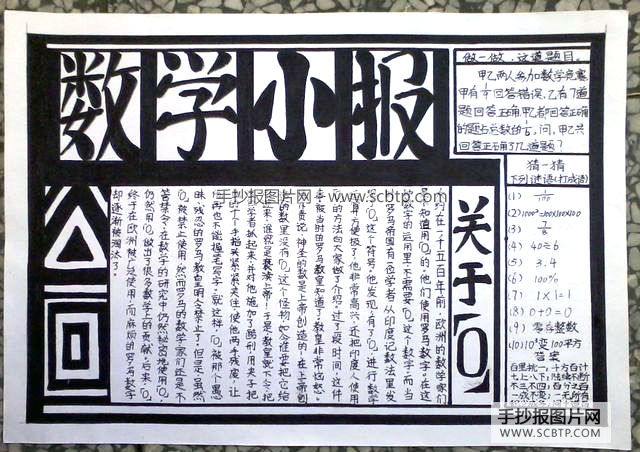 数学小报
做一做,这道题目。
甲乙两人参加数学竞赛
甲有 回答错误,乙有7道
题回答正确,甲乙都回答正确
的题占总数的 ,问,甲乙共
回答正确了几道题?
猜一猜
下列谜语(打成语)
(1) 1/100
(2) 1000²=100×100×100
(3) 7/8
(4) 40÷6
(5) 3.4
(6) 100%
(7) 1×1=1
(8) 0+0=0
(9) 零存整数
(10) 10⁰变100平方
答案
百里挑一;千方百计
七上八下;陆续不断
不三不四;百分之百
一成不变;一无所有
关于「0」
大约在一千五百年前,欧洲的数学家们
是不知道用「0」的。他们使用罗马数字。在这
种数字的运用里,不需要「0」这个数字。而当
时,罗马帝国有一位学者从印度记数法里发
现了「0」这个符号。他发现,有了「0」,进行数学
运算方便极了,他非常高兴,还把印度人使用
「0」的方法向大家做了介绍。过了一段时间,这件
事被当时的罗马教皇知道了。教皇非常恼怒,
他斥责说,神圣的数是上帝创造的,在上帝创
造的数里没有「0」这个怪物,如今谁要把它给
引进来,谁就是亵渎上帝!于是,教皇就下令,把
这位学者抓起来,并对他施加了酷刑,用夹子把
他的十个手指头紧紧夹住,使他两手残废,让
他再也不能握笔写字。就这样,「0」被那个愚
昧、残忍的罗马教皇明令禁止了。但是,虽然
「0」被禁止使用,然而罗马的数学家们还是不
管禁令,在数学的研究中仍然秘密地使用「0」,
仍然用「0」做出了很多数学上的贡献。后来「0」
终于在欧洲被广泛使用,而麻烦的罗马数字
却逐渐被淘汰了。
手抄报图片网 www.scbtp.com
手抄报图片网
WWW.SCBTP.COM